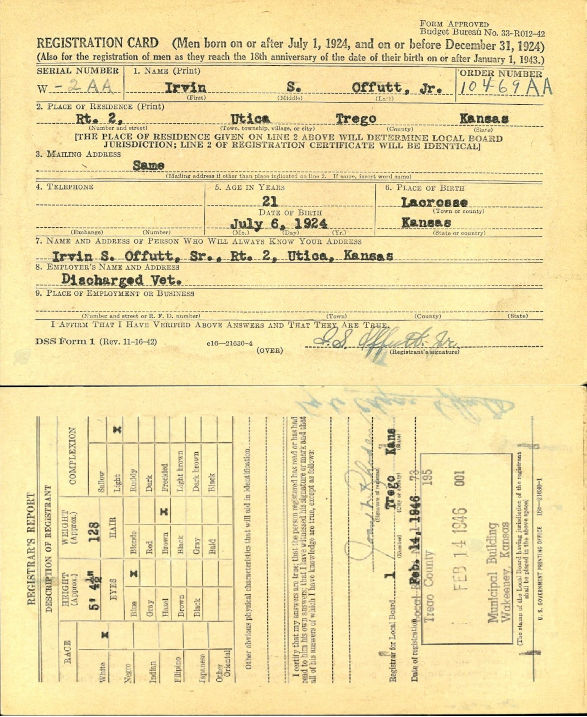 FORM APPROVED
Budget Bureau No. 33-R012-42
REGISTRATION CARD (Men born on or after July 1, 1924, and on or before December 31, 1924)
(Also for the registration of men as they reach the 18th anniversary of the date of their birth on or after January 1, 1943.)
SERIAL NUMBER 1. NAME (Print) ORDER NUMBER
W-2AA Irvin S. Offutt, Jr. 10469AA
(First) (Middle) (Last)
2. PLACE OF RESIDENCE (Print)
Rt. 2, Utica Trego Kansas
(Number and street) (Town, township, village, or city) (County) (State)
[THE PLACE OF RESIDENCE GIVEN ON LINE 2 ABOVE WILL DETERMINE LOCAL BOARD
JURISDICTION; LINE 2 OF REGISTRATION CERTIFICATE WILL BE IDENTICAL]
3. MAILING ADDRESS
Same
(Mailing address if other than place indicated on line 2. If same, insert word same)
4. TELEPHONE 5. AGE IN YEARS 6. PLACE OF BIRTH
21 Lacrosse
DATE OF BIRTH (Town or county)
July 6, 1924 Kansas
(Exchange) (Number) (Mo.) (Day) (Yr.) (State or country)
7. NAME AND ADDRESS OF PERSON WHO WILL ALWAYS KNOW YOUR ADDRESS
Irvin S. Offutt, Sr., Rt. 2, Utica, Kansas
8. EMPLOYER'S NAME AND ADDRESS
Discharged Vet.
9. PLACE OF EMPLOYMENT OR BUSINESS
(Number and street or R. F. D. number) (Town) (County) (State)
I AFFIRM THAT I HAVE VERIFIED ABOVE ANSWERS AND THAT THEY ARE TRUE.
DSS Form 1 (Rev. 11-16-42) c16-21630-4 I. S. Offutt Jr.
(OVER) (Registrant's signature)
REGISTRAR'S REPORT
DESCRIPTION OF REGISTRANT
RACE HEIGHT (Approx.) WEIGHT (Approx.) COMPLEXION
5' 4½" 128
EYES HAIR
White X Blue X Blonde Sallow
Negro Gray Red Light X
Indian Hazel Brown X Ruddy
Filipino Brown Black Dark
Japanese Black Gray Freckled
Other Oriental Bald Light brown
Dark brown
Black
Other obvious physical characteristics that will aid in identification
I certify that my answers are true; that the person registered has read or has had
read to him his own answers; that I have witnessed his signature or mark and that
all of his answers of which I have knowledge are true, except as follows:
Registrar for Local Board 1 Trego Kans
Date of registration Feb. 14, 1946
73
195
Trego County
FEB 14 1946 001
Municipal Building
Wakeeney, Kansas
(The stamp of the Local Board having jurisdiction of the registrant
shall be placed in the above space)
U. S. GOVERNMENT PRINTING OFFICE